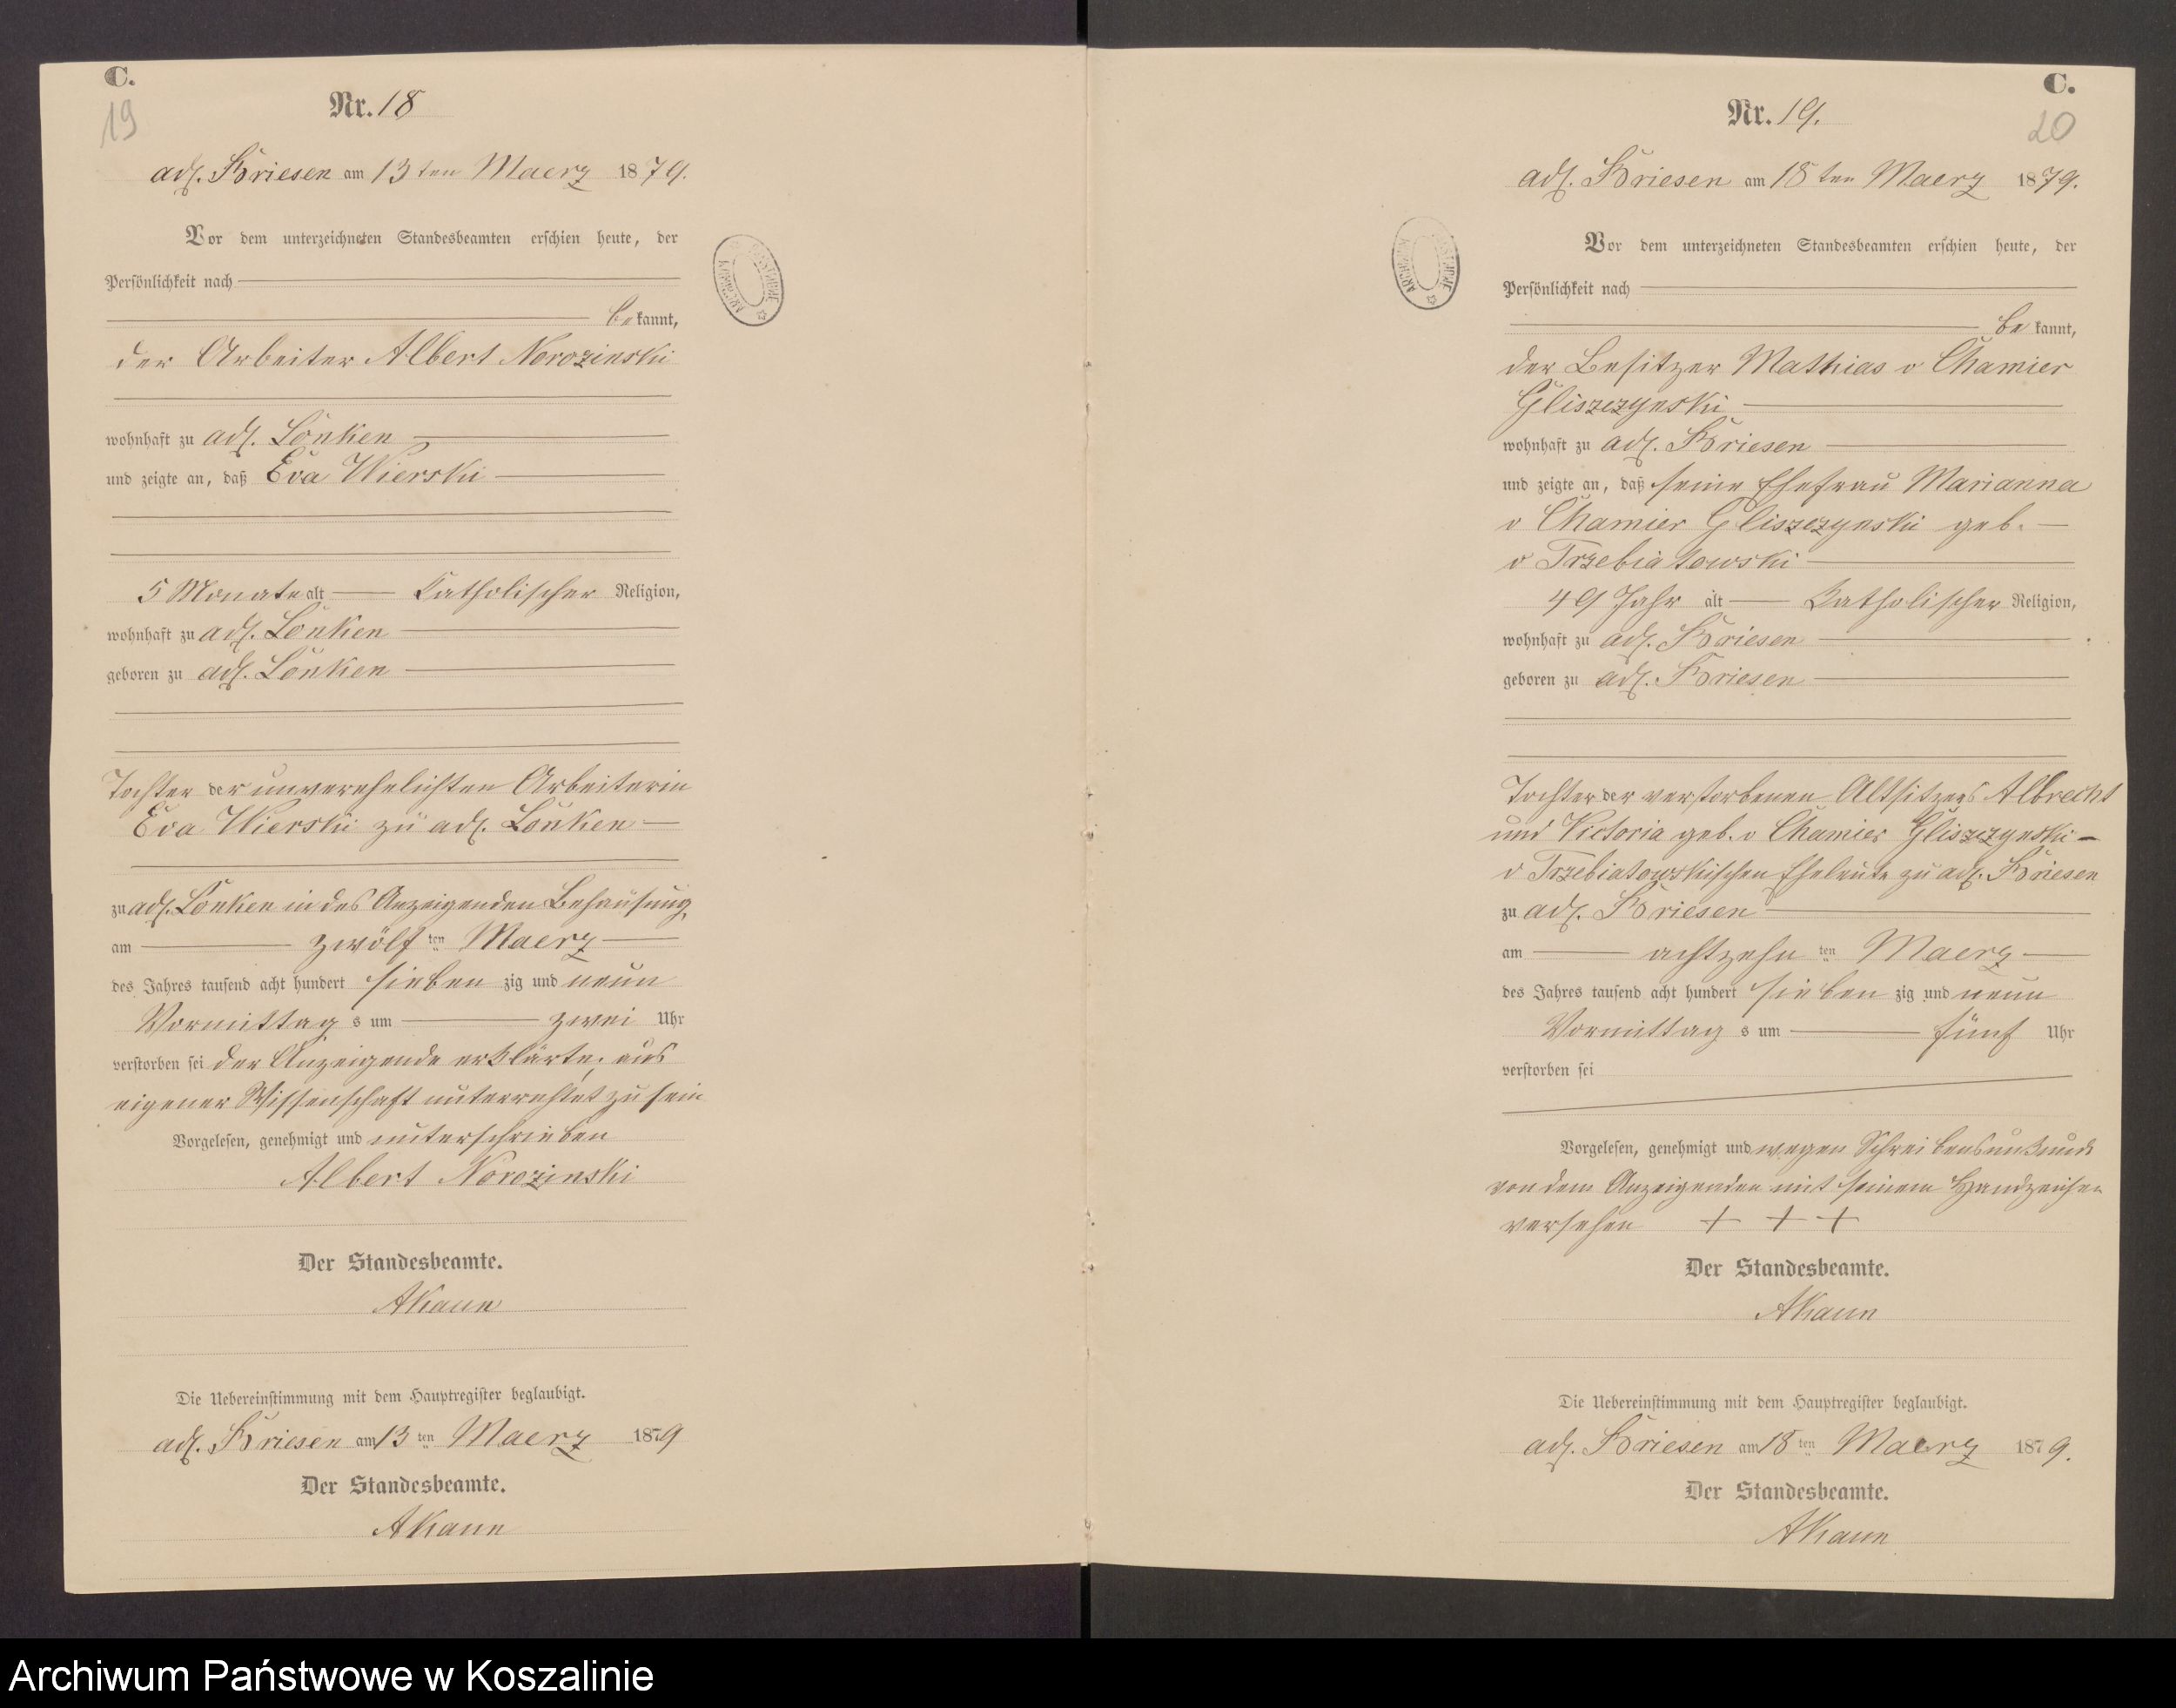 C.
19
Nr. 18
adl. Briesen am 13ten Maerz 1879.
Vor dem unterzeichneten Standesbeamten erschien heute, der
Persönlichkeit nach
bekannt,
der Arbeiter Albert Norozinski
wohnhaft zu adl. Lonken
und zeigte an, daß Eva Wierski
5 Monate alt Catholischer Religion,
wohnhaft zu adl. Lonken
geboren zu adl. Lonken
Tochter der unverehelichten Arbeiterin
Eva Wierski zu adl. Lonken
zu adl. Lonken in des Anzeigenden Behausung,
am zwölften Maerz
des Jahres tausend acht hundert siebenzig und neun
Vormittags um zwei Uhr
verstorben sei der Anzeigende erklärte, aus
eigener Wissenschaft unterrichtet zu sein
Vorgelesen, genehmigt und unterschrieben
Albert Norozinski
Der Standesbeamte.
AKaun
Die Uebereinstimmung mit dem Hauptregister beglaubigt.
adl. Briesen am 13ten Maerz 1879
Der Standesbeamte.
AKaun
C.
20
Nr. 19.
adl. Briesen am 18ten Maerz 1879.
Vor dem unterzeichneten Standesbeamten erschien heute, der
Persönlichkeit nach
bekannt,
der Besitzer Mathias v Chamier
Gliszczynski
wohnhaft zu adl. Briesen
und zeigte an, daß seine Ehefrau Marianna
v Chamier Gliszczynski geb.
v Trzebiatowski
49 Jahr alt Katholischer Religion,
wohnhaft zu adl. Briesen
geboren zu adl. Briesen
Tochter der verstorbenen Altsitzers Albrecht
und Victoria geb. v Chamier Gliszczynski
v Trzebiatowskischen Eheleute zu adl. Briesen
zu adl. Briesen
am achtzehnten Maerz
des Jahres tausend acht hundert siebenzig und neun
Vormittags um fünf Uhr
verstorben sei
Vorgelesen, genehmigt und wegen Schreibensunkunde
von dem Anzeigenden mit seinem Handzeichen
versehen + + +
Der Standesbeamte.
AKaun
Die Uebereinstimmung mit dem Hauptregister beglaubigt.
adl. Briesen am 18ten Maerz 1879.
Der Standesbeamte.
AKaun
Archiwum Państwowe w Koszalinie